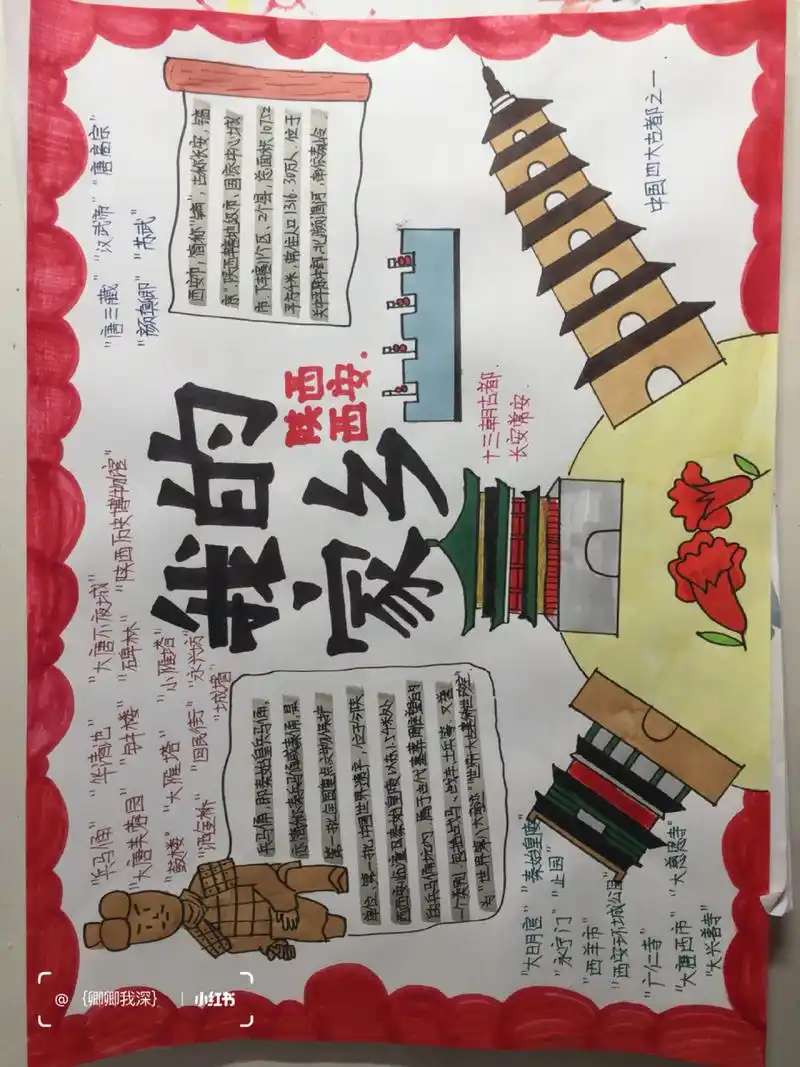 "兵马俑" "华清池" "大唐不夜城"
"大唐芙蓉园" "钟楼" "碑林" "陕西历史博物馆"
"鼓楼" "大雁塔" "小雁塔"
"洒金桥" "回民街" "永兴坊"
"城墙"
"唐三藏" "汉武帝" "唐高宗"
"颜真卿" "苏武"
我的
家乡
陕西
西安.
西安市,简称 古称长安、镐
京"陕西辖地级市、国家中心城
市,下辖11个区、2个县,总面积10752
平方千米,常住人口1316.30万人,位于
关中平原中部,北濒渭河,南依秦岭.
兵马俑,即秦始皇兵马俑,
亦简称秦兵马俑或秦俑,是
第一批全国重点文物保护
单位、第一批中国世界遗产,位于今陕
西西安临潼区秦始皇陵以东1.5千米处
的兵马俑坑内,属于古代墓葬雕塑的
个类别,包括战马、战车、士兵等,又誉
为"世界第八大奇迹"
十三朝古都.
长安常安.
中国四大古都之一.
"大明宫" "秦始皇陵"
"永宁门" "止园"
"西羊市"
"西安环城公园"
"广仁寺"
"大唐西市" "大慈恩寺"
"大兴善寺"
@ {卿卿我深} | 小红书